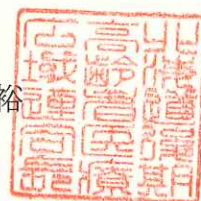 裕
北海道後期
高齢者医療
広域連合長